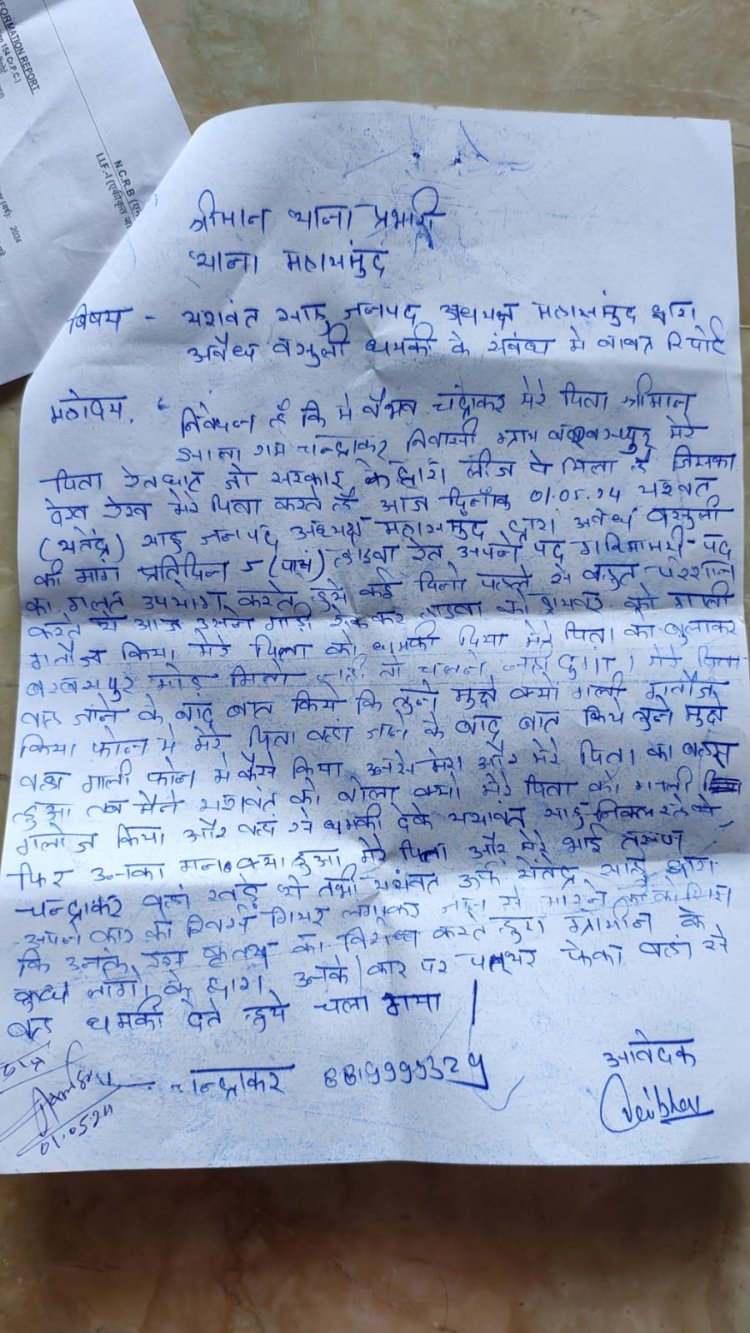 FORMATION REPORT
154 Cr.P.C.)
N.C.R.B
I.I.F.-I
2024
श्रीमान थाना प्रभारी
थाना महासमुंद
विषय - यशवंत साहू जनपद अध्यक्ष महासमुंद द्वारा
अवैध वसुली धमकी के संबंध मे बावत रिपोर्ट
महोदय,
निवेदन है कि मै वैभव चंद्राकर मेरे पिता श्रीमान
राम चन्द्राकर निवासी ग्राम मेरे
पिता रेत घाट जो सरकार के द्वारा लीज पे मिला है जिसका
देख रेख मेरे पिता करते है आज दिनाँक 01.05.24 यशवंत
(येतेंद्र) साहू जनपद अध्यक्ष महासमुंद द्वारा अवैध वसुली
की मांग प्रतिदिन 5 (पांच) हाइवा रेत अपने पद गरिमामयी पद
का गलत उपयोग करते हुये कई दिनो पहले से बहुत परेशान
करते थे आज उसने गाड़ी रोक कर हाइवा को ड्रायवर को गाली
गलौज किया मेरे पिता को धमकी दिया मेरे पिता को बुलाकर
मोड़ मिलो नही तो चलने नही दुंगा। मेरे पिता
वहा जाने के बाद बात किये कि तुने मुझे क्यो गाली गलौज
किया फोन मे मेरे पिता वहा जाने के बाद बात किये तुने मुझे
गाली फोन मे कैसे किया उनसे मेरा और मेरे पिता का बहस
हुआ तब मैने यशवंत को बोला क्यो मेरे पिता को गाली
गलोज किया और वहा से धमकी देके यशवंत साहू निकल रहे थे,
फिर उनका मन क्या हुआ मेरे पिता और मेरे भाई तरुण
चन्द्राकर वहां खड़े थे तभी यशवंत उर्फ येतेंद्र साहू द्वारा
अपने कार को रिवर्स गियर लगाकर जान से मारने की कोशिश
कि उनके इस कृत्य का विरोध करते हुये ग्रामीन के
कुछ लोगो के द्वारा उनके कार पर पत्थर फेका वहा से
वह धमकी देते हुये चला गया
चन्द्राकर 8819999329
आवेदक
Veibhav
01.05.24